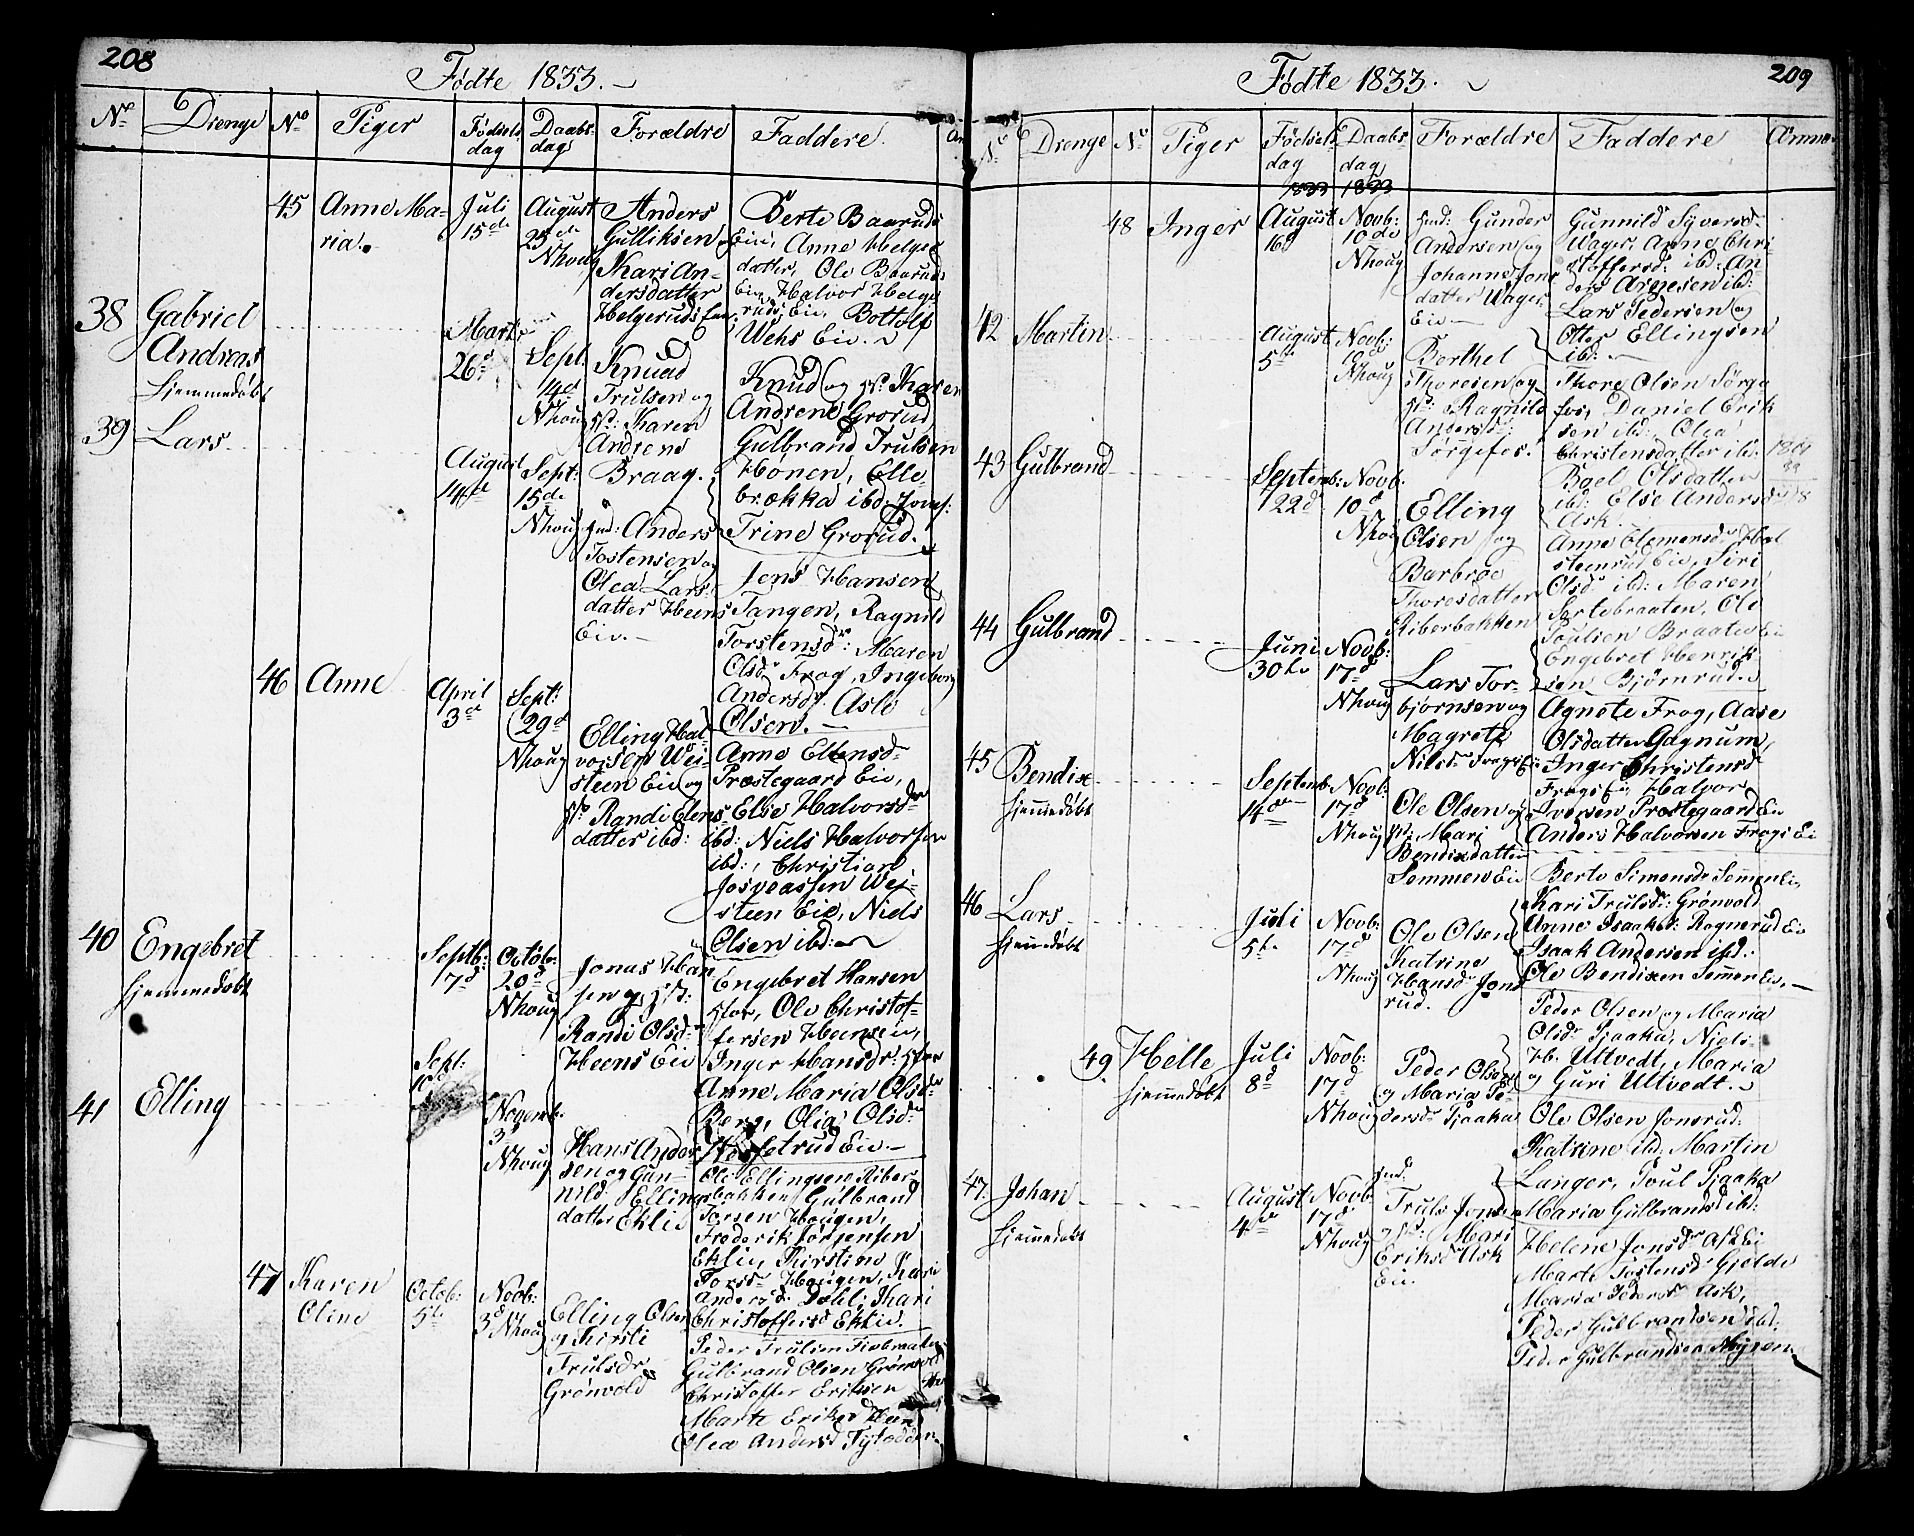 208
Fødte 1833.
No Drenge No Piger Fødsels dag Daabs dag Forældre Faddere
45 Anne Maria.
Juli 15de
August 25de
Nhoug
Anders
Gulliksen og
Kari An-
dersdatter
Helgeruds Eie.
Berte Baaruds
Eie, Anne Helges
datter, Ole Baaruds
Eie, Halvor Helge
ruds Eie, Bottolf
Wehs Eie.
38 Gabriel
Andreas
hjemmedøbt
Marts
26d
Sept.
14d
Nhoug
Knud
Trulsen og
H: Karen
Andrene
Braag.
Knud og H: Karen
Andrene Grorud
Gulbrand Trulsen
Hønen, Elle
brækka ibd: Jomf:
Trine Grorud.
39 Lars
August
14de
Sept:
15de
Nhoug
Ind: Anders
Tostensen og
Olea Lars
datter Heens
Eie.
Jens Hansen
Tangen, Ragnild
Torstensdr: Maren
Olsdr Frog, Ingeborg
Andersdr Asle
Olsen.
46 Anne
April
3d
Sept:
29d
Nhoug
Elling Hal
vorsen Wei-
steen Eie og
H: Randi Elens
datter ibd:
Anne Ellensd
Præstegaard Eie,
Else Halvorsdr
ibd: Niels Halvorsen
ibd:, Christian
Josveassen Wei-
steen Eie, Niels
Olsen ibd:
40 Engebret
hjemmedøbt
Septb:
17d
Octob:
20d
Nhoug
Jonas Han
sen og H:
Randi Olsd:
Heens Eie
Engebret Hansen
Ole Christof-
fersen Heenseie,
Inger Hansdr:
Anne Maria Olsdr
Berg, Olia Olsdr
41 Elling
Sept:
10d
Novemb.
3d
Nhoug
Hans Ander
sen og Gun-
nild Ellings
datter Eklie
Ole Ellingsen Riber
bakken Gulbrand
Torsen Hougen,
Frederik Jørgensen
Eklie, Kirstine
Torsd Hougen, Kari
Andersd. Dæhl: Kari
Christoffersd Eklie.
47 Karen
Oline
Octob:
5te
Novb:
3d Nhoug
Elling Olsen
og Kirsti
Trulsdr
Grønvold
Peder Trulsen
Gulbrand Olsen Grønvold
Christoffer Eriksen
Marte Eriksd Heen
Olea Andersd
209
Fødte 1833.
No Drenge No Piger Fødsels dag Daabs dag Forældre Faddere Anm
1833 1833
48 Inger
August
16d
Novb:
10de
Nhoug
Ind: Gunder
Andersen og
Johanne Jons
datter Wager
Eie
Gunnild Syversd:
Wager, Anne Chri
stoffersd: ibd: An
ders Arnesen ibd:
Lars Pedersen og
Otter Ellingsen
ibd:
42 Martin
August
5te
Novb:
10d
Nhoug
Berthel
Thoresen og
H: Ragnild
Andersd:
Sørgefos.
Thore Olsen Sørge
fos, Daniel Erik
sen ibd: Olea
Christensdatter ibd:
Boel Olsdatter
ibd: Else Andersd
Ask.
43 Gulbrand
Septemb:
22d
Novb:
10d
Nhoug
Elling
Olsen og
Barbroe
Thoresdatter
Riberbakken
Anne Clemensdr Hal
steenrud Eie, Siri
Olsdr ibd: Maren
Sørtebraaten, Ole
Poulsen Braaten Eie
Engebret Henrik
sen Bjørnrud.
44 Gulbrand
Juni
30te
Novb:
17d
Nhoug
Lars Tor-
bjørnsen og
Magrete
Nilsdr Frogs Eie
Agnete Frog, Aase
Olsdatter Gagnum,
Inger Christensd
Frogs Eie, Halvor
Iversen Præstegaard Eie
Anders Halvorsen Frogs Eie
45 Bendix
hjemmedøbt
Septemb
14de
Novb:
17d
Nhoug
Ole Olsen og
H: Mari
Bendixdatter
Semmen Eie
Berte Simensdr Semmen Eie,
Kari Trulsdr: Grønvold
Anne Isaaksd: Rognerud Eie
Isaak Andersen ibd:
Ole Bendixen Semmen Eie.
46 Lars
hjemmedøbt
Juli
5te
Novb:
17d
Nhoug
Ole Olsen
Katrine
Hansdr Jons
rud.
Peder Olsen og Maria
Olsdr Tjaaka, Niels
Hb. Ultvedt, Maria
og Guri Ultvedt.
49 Helle
hjemmedøbt
Juli
8d
Novb:
17d
Nhoug
Peder Olsen
og Maria Pe
dersdr Tjaaka
Ole Olsen Jonsrud:
Katrine ibd: Martin
Langer, Poul Tjaaka
Maria Gulbrandsd ibd:
47. Johan
hjemmedøbt
August
4de
Novb:
17d
Nhoug
Ind:
Truls Jonsen
og H: Mari
Eriksdr Ask
Eie.
Helene Jonsdr Ask Ei
Marte Tostensdr Gjelde
Maria Pedersdr Ask,
Peder Gulbrandsen ibd:
Peder Gulbrandsen Myren